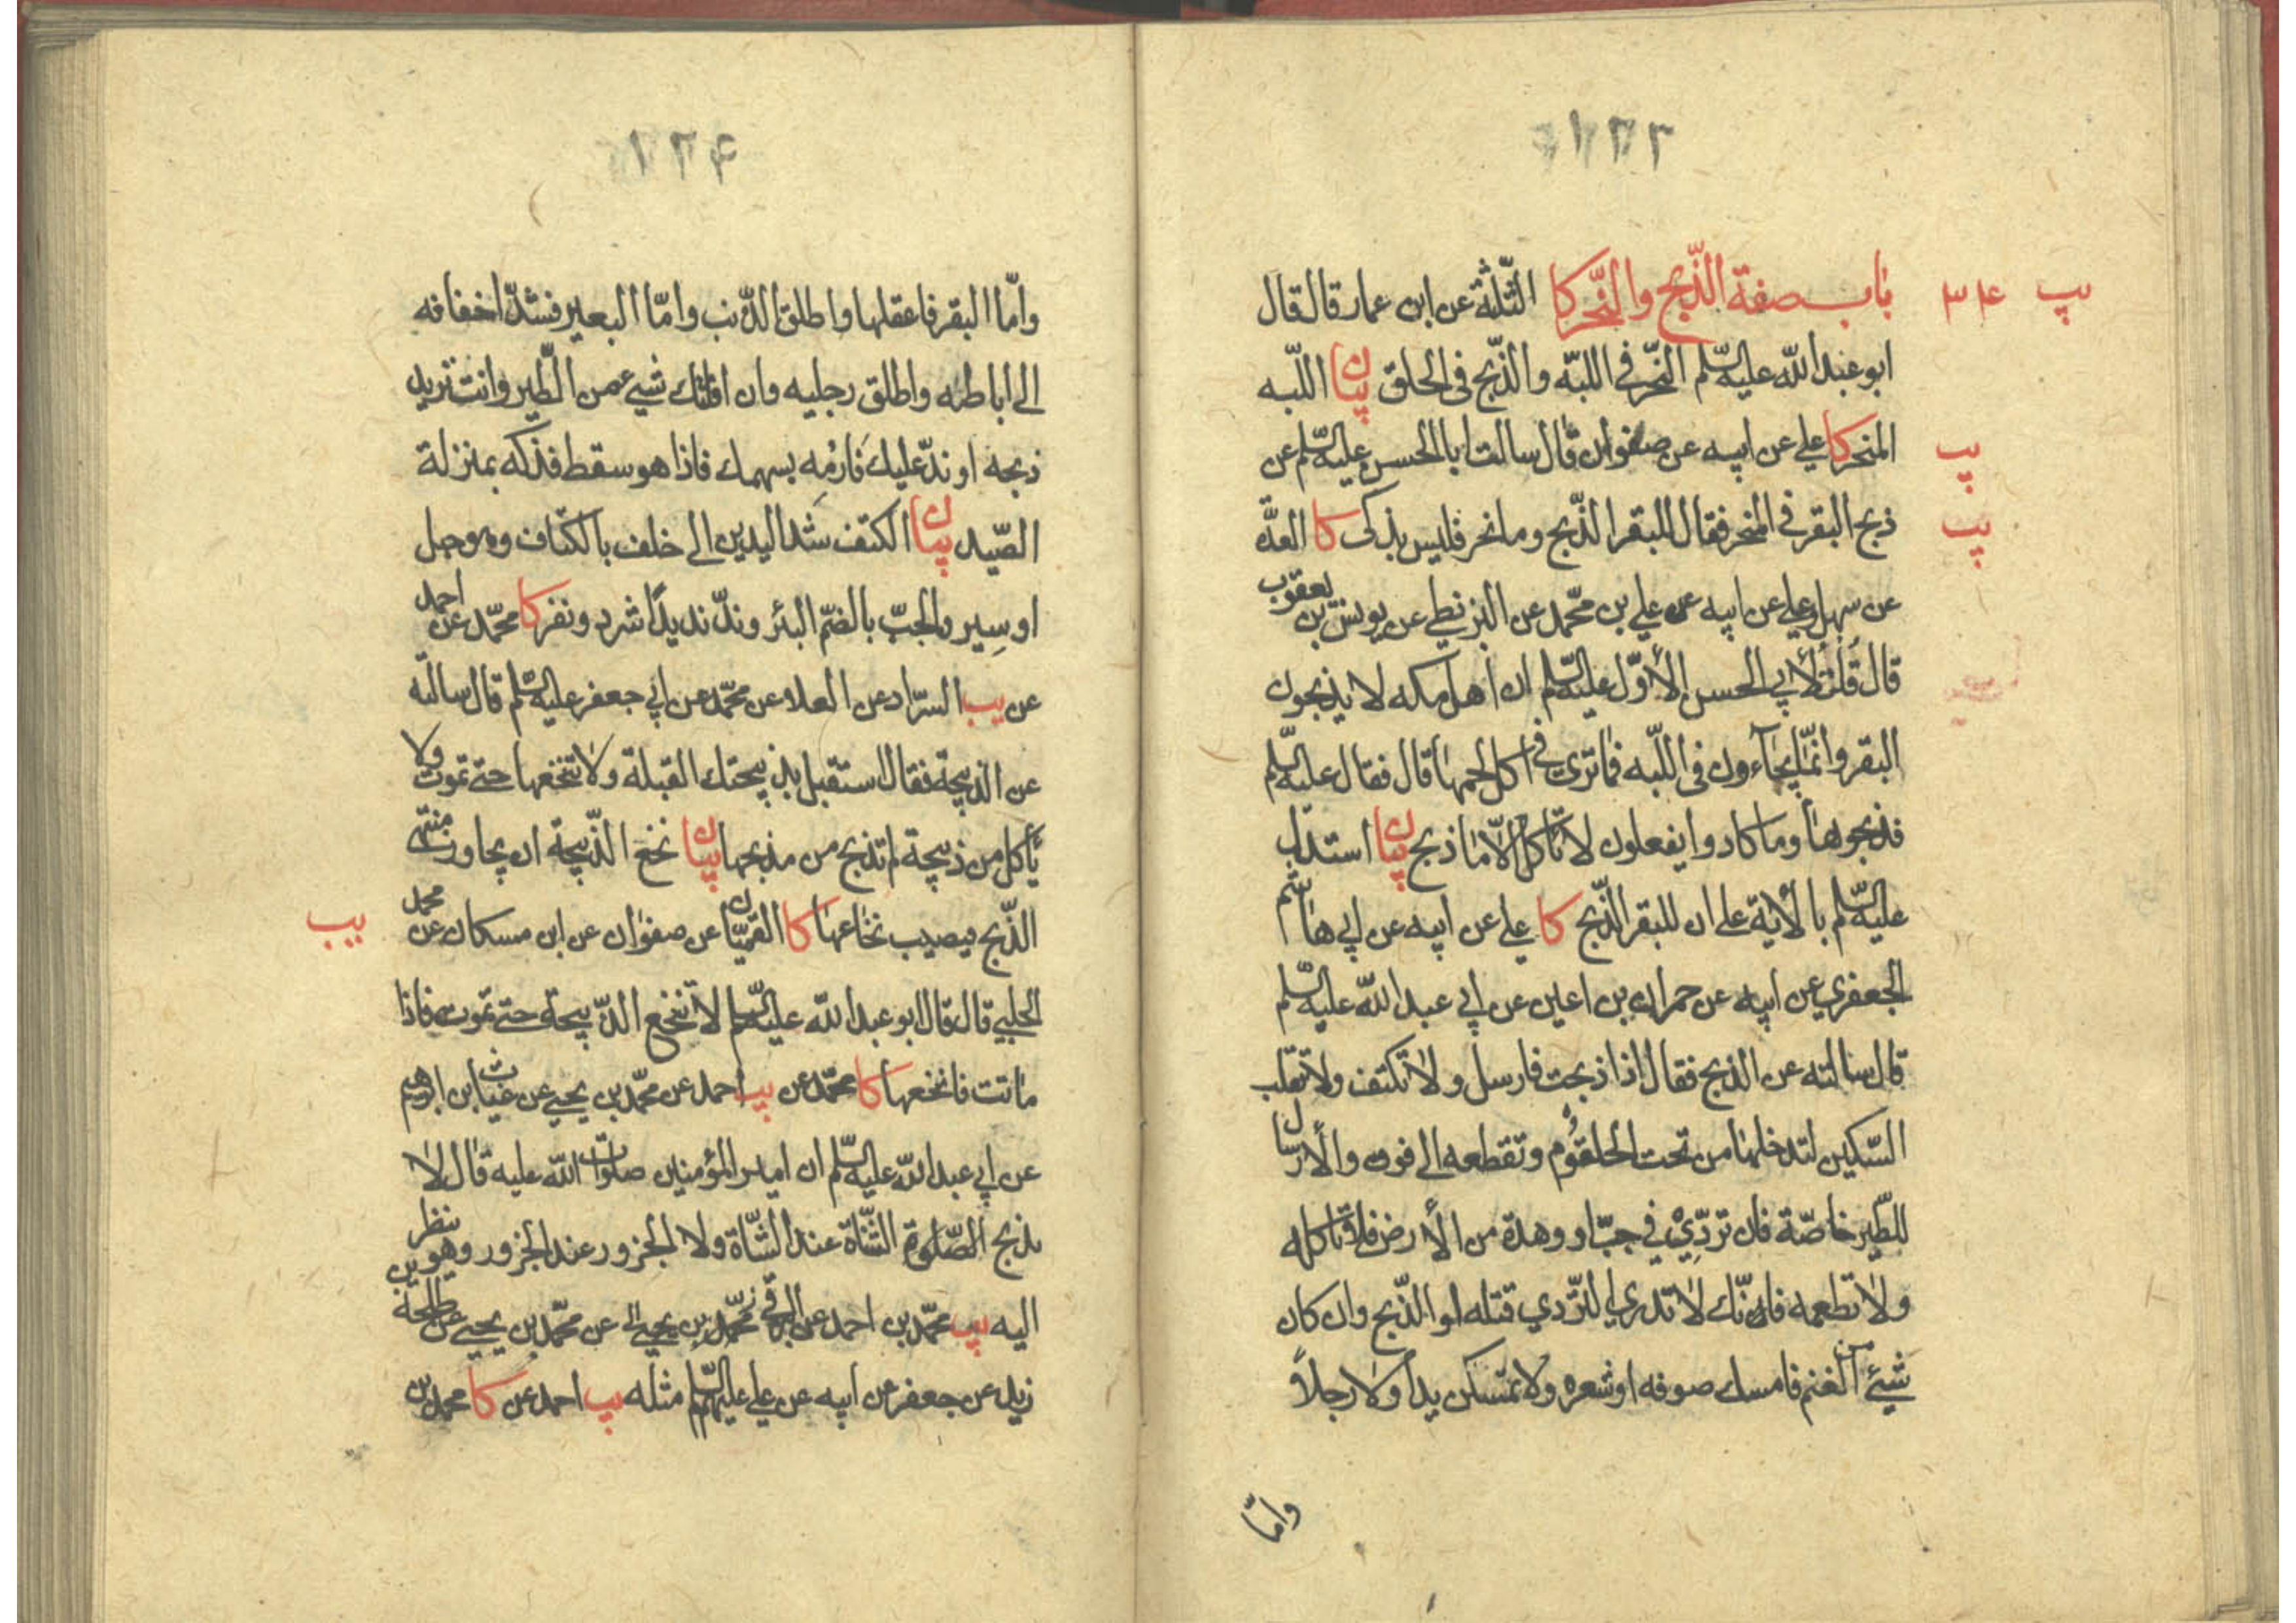 باب صفة الذّبح والنّحر كا الثّلثة عن ابن عمار قال قال
ابو عبد الله عليه السّلم النّحر في اللبّة والذّبح في الحلق بيان اللّبه
المنحر كا علي عن ابيه عن صفوان قال سالت ابا الحسن عليه السّلم عن
ذبح البقر في المنحر فقال للبقر الذّبح وما نحر فليس بذكى كا العدّة
عن سهل وعلي عن ابيه عن علي بن محمّد عن البزنطي عن يونس بن يعقوب
قال قلت لأبي الحسن الأوّل عليه السّلم ان اهل مكه لا يذبحون
البقر وانّما يجآءون في اللّبه فما ترى في اكل لحمها قال فقال عليه السّلم
فذبحوها وما كادوا يفعلون لا تاكل الّا ما ذبح بيان استدل
عليه السّلم بالأية على ان للبقر الذّبح كا علي عن ابيه عن ابي هاشم
الجعفري عن ابيه عن حمران بن اعين عن ابي عبد الله عليه السّلم
قال سالته عن الذبح فقال اذا ذبحت فارسل ولا تكتف ولا تقلب
السّكين لتدخلها من تحت الحلقوم وتقطعه الى فوق والأرسال
للطّير خاصّة فان تردّي في جبّ او وهدة من الأرض فلا تاكله
ولا تطعمه فانّك لا تدري التّردي قتله او الذّبح وان كان
شيئ من الغنم فامسك صوفه او شعره ولا تمسكن يدا ولا رجلاً
وامّا
يب ٣٤
يب
يب
وامّا البقر فاعقلها واطلق الذّنب وامّا البعير فشدّ اخفافه
الى اباطه واطلق رجليه وان افلتك شيء من الطّير وانت تريد
ذبحه او ندّ عليك فارمه بسهمك فاذا هو سقط فذكه بمنزلة
الصّيد بيان الكتف شد اليدين الى خلف بالكتاف وهو حبل
او سير والجبّ بالضّم البئر وندّ نديدًا شرد ونفر كا محمّد عن احمد
عن يب السّراد عن العلا عن محمّد عن ابي جعفر عليه السّلم قال سالته
عن الذبيحة فقال استقبل بذبيحتك القبلة ولا تنخعها حتى تموت ولا
يأكل من ذبيحة لم تذبح من مذبحها بيان نخع الذّبيحة ان يجاوز منتهى
الذّبح فيصيب نخاعها كا القميّان عن صفوان عن ابن مسكان عن محمد
الحلبي قال قال ابو عبد الله عليه السّلم لا تنخع الذّبيحة حتى تموت فاذا
ماتت فانخعها كا محمّد عن يب احمد عن محمّد بن يحيى عن غياث بن ابرهيم
عن ابي عبد الله عليه السّلم ان امير المؤمنين صلوات الله عليه قال لا
يذبح الصّلوة الشّاة عند الشّاة ولا الجزور عند الجزور وهو ينظر
اليه يب محمّد بن احمد عن البرقي محمّد بن يحيى عن محمّد بن يحيى عن طلحة بن
زيد عن جعفر عن ابيه عن علي عليهم السّلم مثله يب احمد عن كا محمد بن
يب